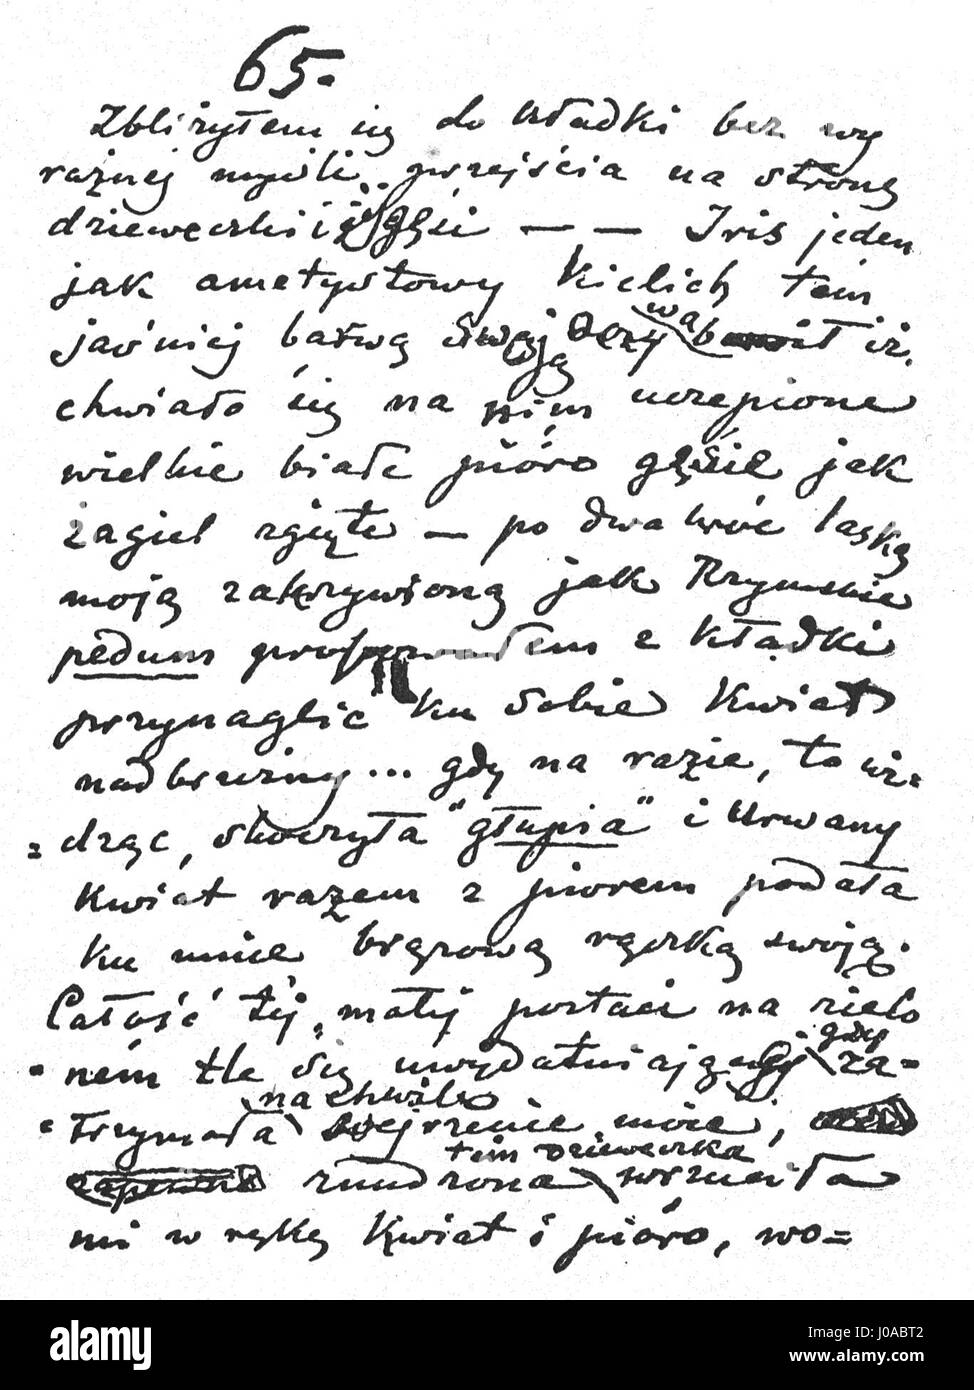 65.
Zbliżyłem się do kładki bez wy
raźnej myśli przejścia na stronę
dzieweczki i gęsi — — Iris jeden
jak ametystowy kielich tém
jaśniej barwą swoją oczy wabił iż
chwiało się na nim uczepione
wielkie białe pióro gęsie jak
żagiel zgięte — po dwakroć laską
moją zakrzywioną jak Rzymskie
pedum z kładki
przynaglić ku sobie kwiat
nadbrzeżny... gdy na razie, to wi=
=dząc, skoczyła "głupia" i urwany
kwiat razem z piórem podała
ku mnie brązową rączką swoją.
Całość téj małéj postaci na zielo
=ném tle się uwydatniającéj gdy za=
=trzymała na chwilę wejrzenie moje,
znudzona tém dzieweczka wrzuciła
mi w rękę kwiat i pióro, wo=
alamy
Image ID: J0ABT2
www.alamy.com